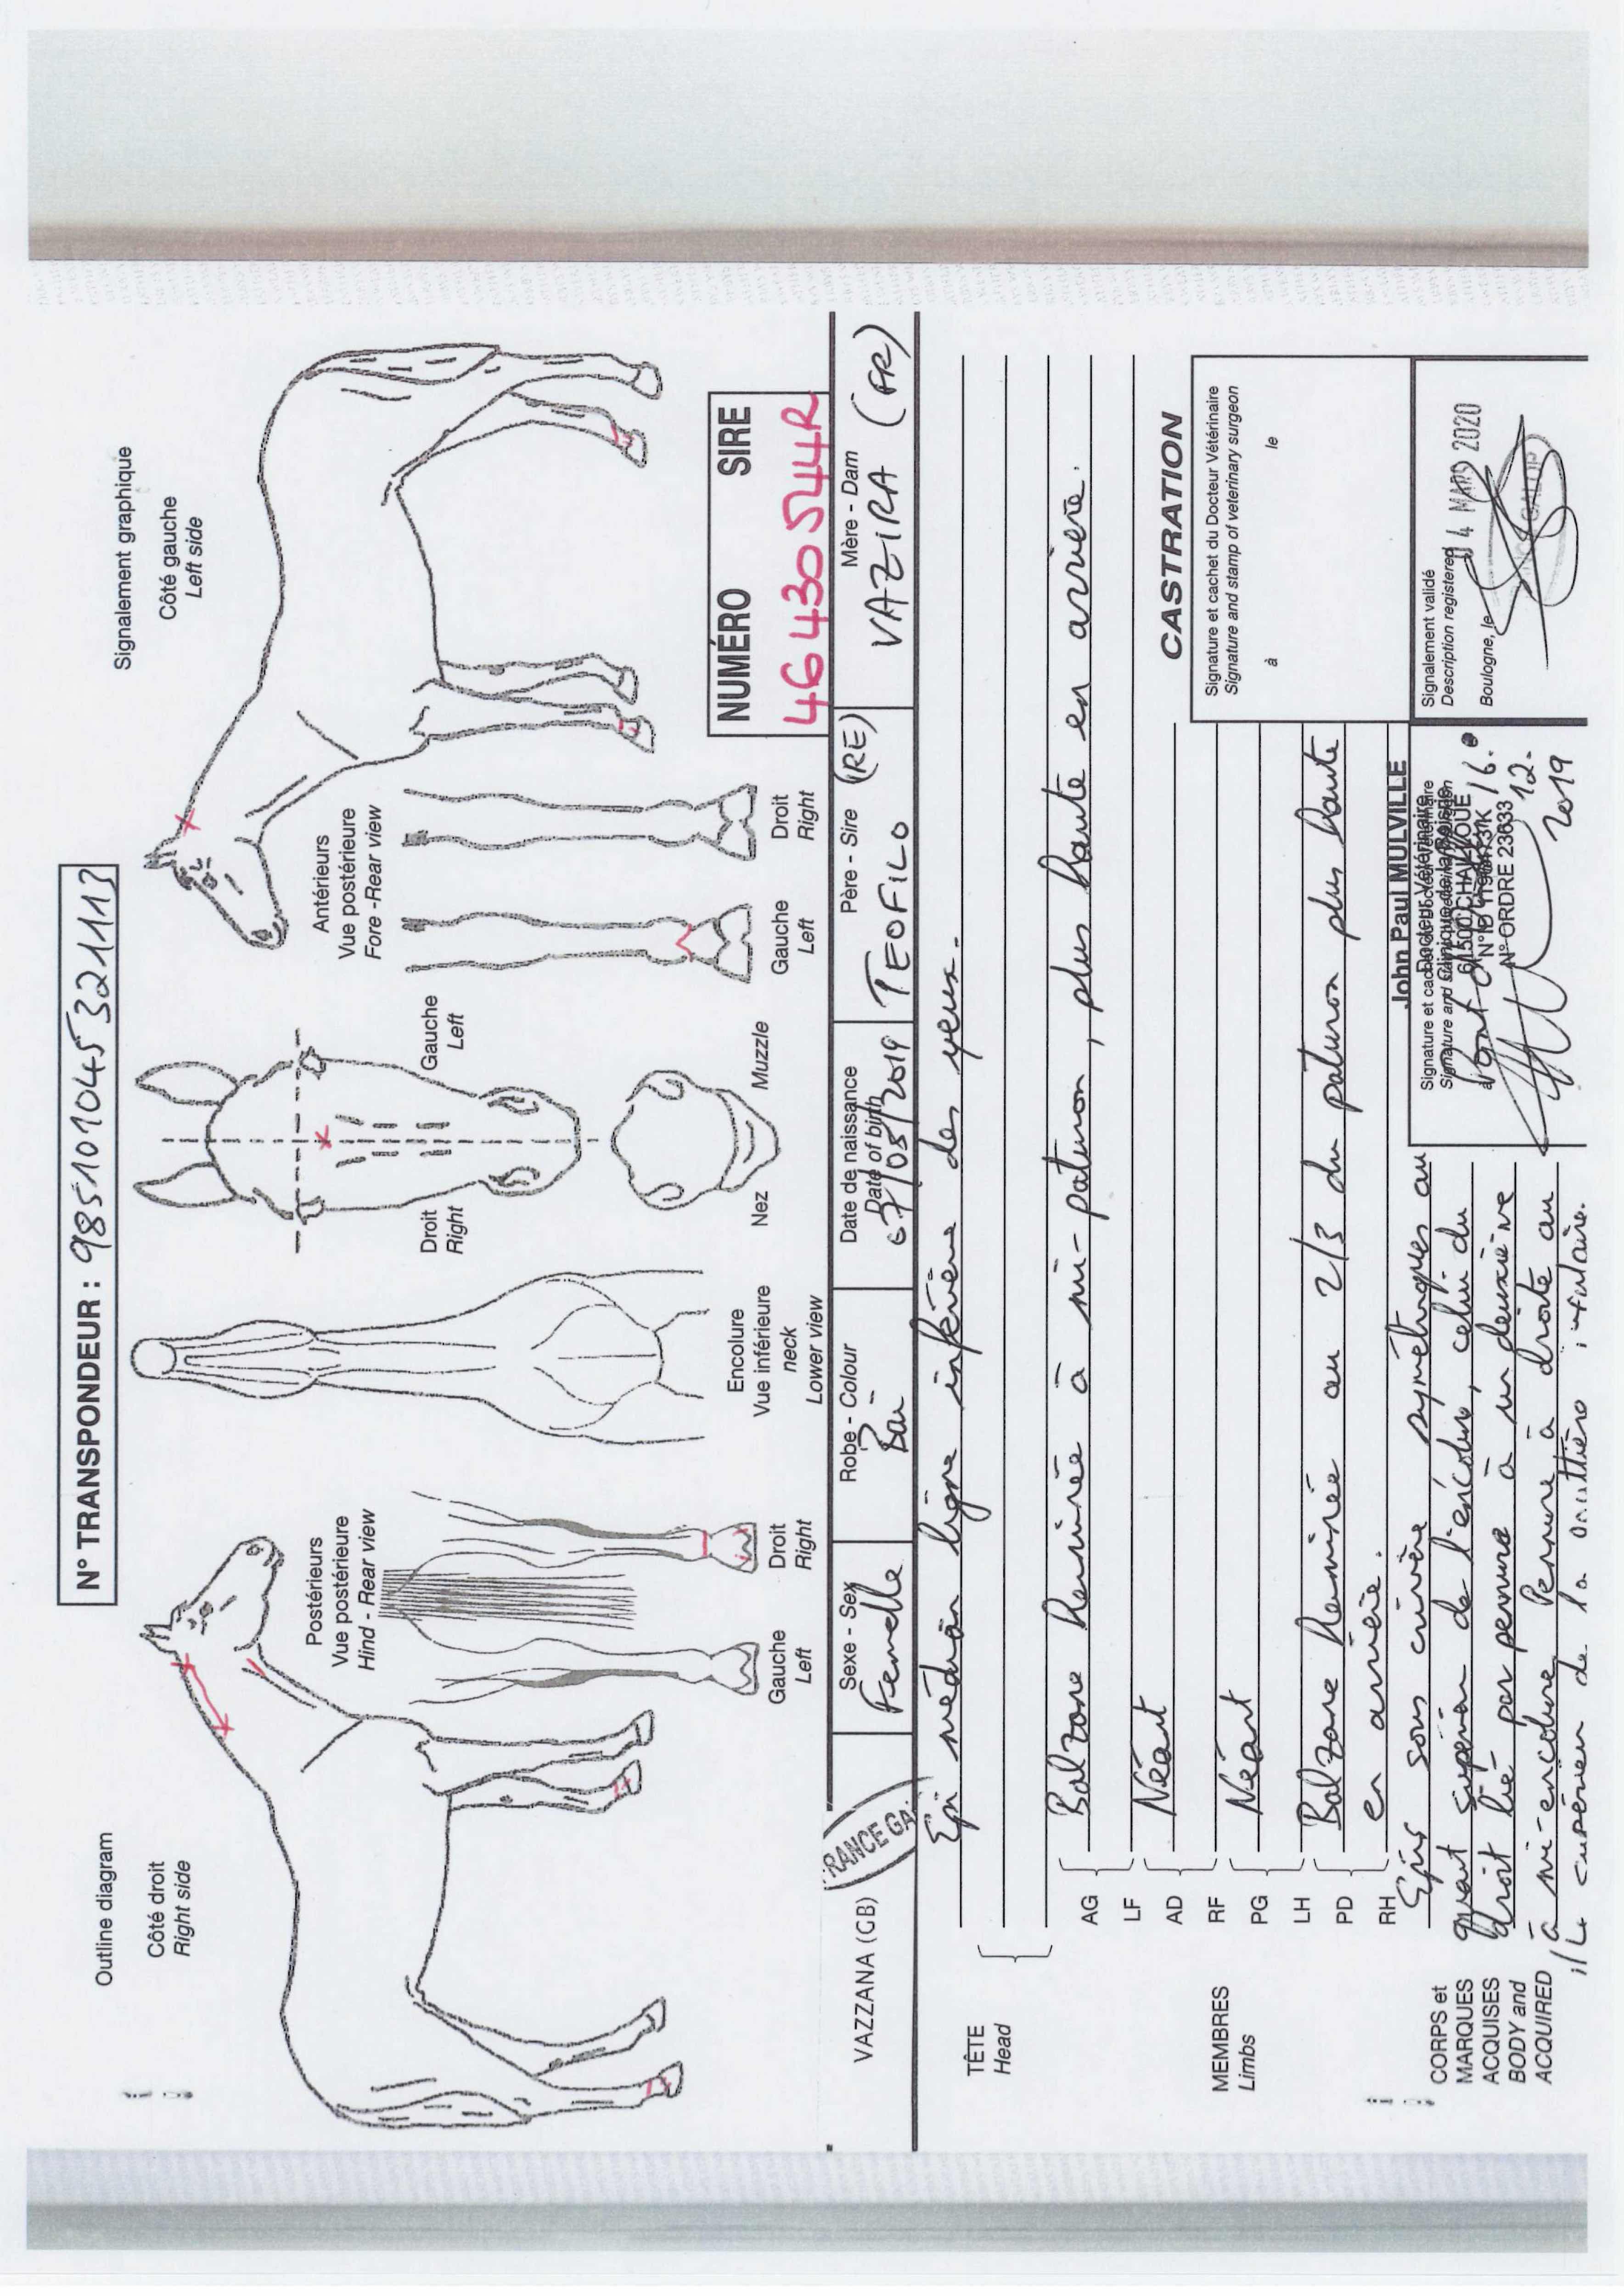 N° TRANSPONDEUR : 985101045321113
Outline diagram
Signalement graphique
Côté droit
Right side
Côté gauche
Left side
Postérieurs
Vue postérieure
Hind - Rear view
Gauche
Left
Droit
Right
Encolure
Vue inférieure
neck
Lower view
Droit
Right
Gauche
Left
Nez
Muzzle
Antérieurs
Vue postérieure
Fore -Rear view
Gauche
Left
Droit
Right
NUMÉRO SIRE
46430544R
VAZZANA (GB)
FRANCE GA
Sexe - Sex
Femelle
Robe - Colour
Bai
Date de naissance
Date of birth
07/03/2019
Père - Sire
TEOFILO (IRE)
Mère - Dam
VAZIRA (FR)
TÊTE
Head
Epi médian ligne inférieure des yeux.
MEMBRES
Limbs
AG
LF
Balzane herminée à mi-paturon, plus haute en arrière.
AD
RF
Néant
PG
LH
Néant
PD
RH
Balzane herminée au 2/3 du paturon plus haute
en arrière.
CORPS et
MARQUES
ACQUISES
BODY and
ACQUIRED
Epis sous crinière symétriques au
quart supérieur de l'encolure, celui du
droit lié par pennure à un deuxième
à mi-encolure. Pennure à droite au
1/4 supérieur de la gouttière jugulaire.
CASTRATION
Signature et cachet du Docteur Vétérinaire
Signature and stamp of veterinary surgeon
à le
John Paul MULVILLE
Docteur Vétérinaire
N° ORDRE 23633
16.
12.
2019
Signalement validé
Description registered
Boulogne, le
04 MARS 2020